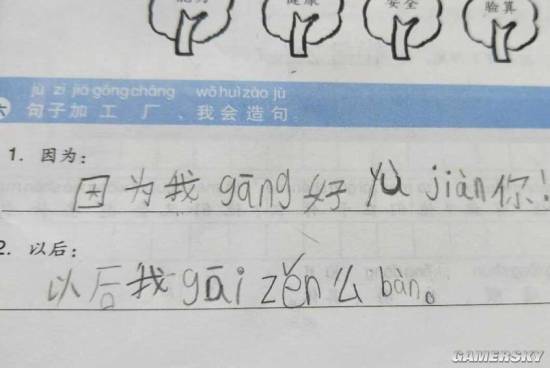 健康 安全 验算
jù zi jiā gōng chǎng wǒ huì zào jù
六 句子加工厂、我会造句
1. 因为：
因为我gāng好yù jiàn你！
2. 以后：
以后我gāi zěn么bàn。
GAMERSKY